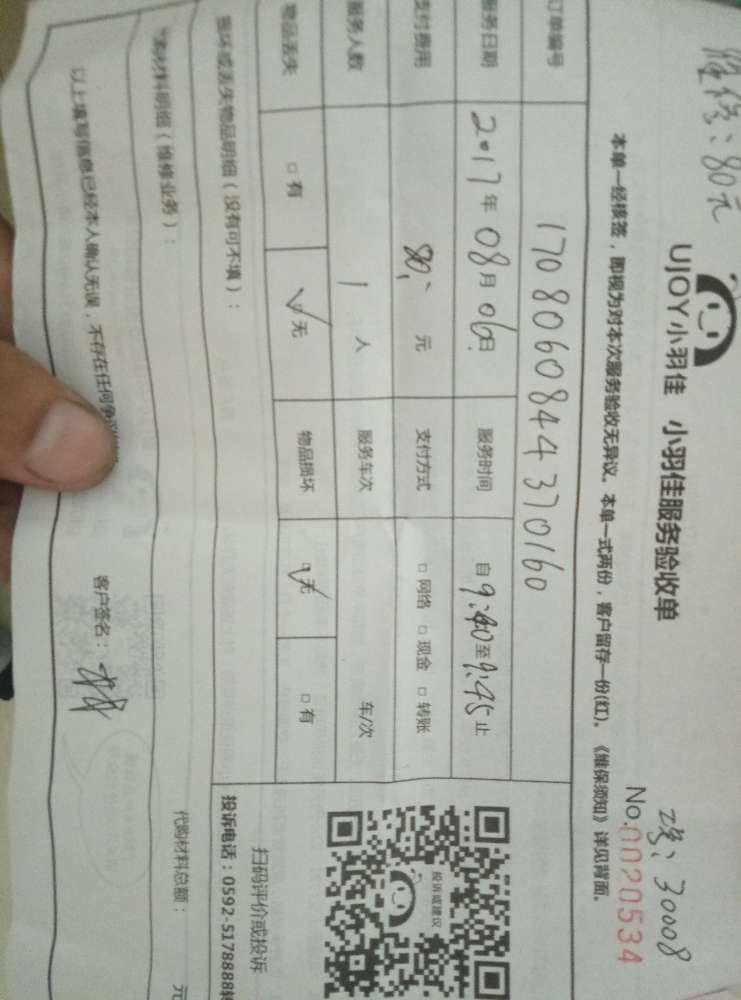 维修：80元
工号：30008
UJOY小羽佳 小羽佳服务验收单
No.0020534
本单一经核签，即视为对本次服务验收无异议。本单一式两份，客户留存一份(红)。《维保须知》详见背面。
订单编号 1708060844370160
服务日期 2017年08月06日 服务时间 自9:40至9:45止
支付费用 80,- 元 支付方式 □网络 □现金 □转账
服务人数 1 人 服务车次 车/次
物品丢失 □有 √无 物品损坏 √无 □有
投诉或建议
扫码评价或投诉
投诉电话：0592-5178888转
损坏或丢失物品明细（没有可不填）：
材料明细（维修业务）：
代购材料总额： 元
以上填写信息已经本人确认无误，不存在任何争议
客户签名：